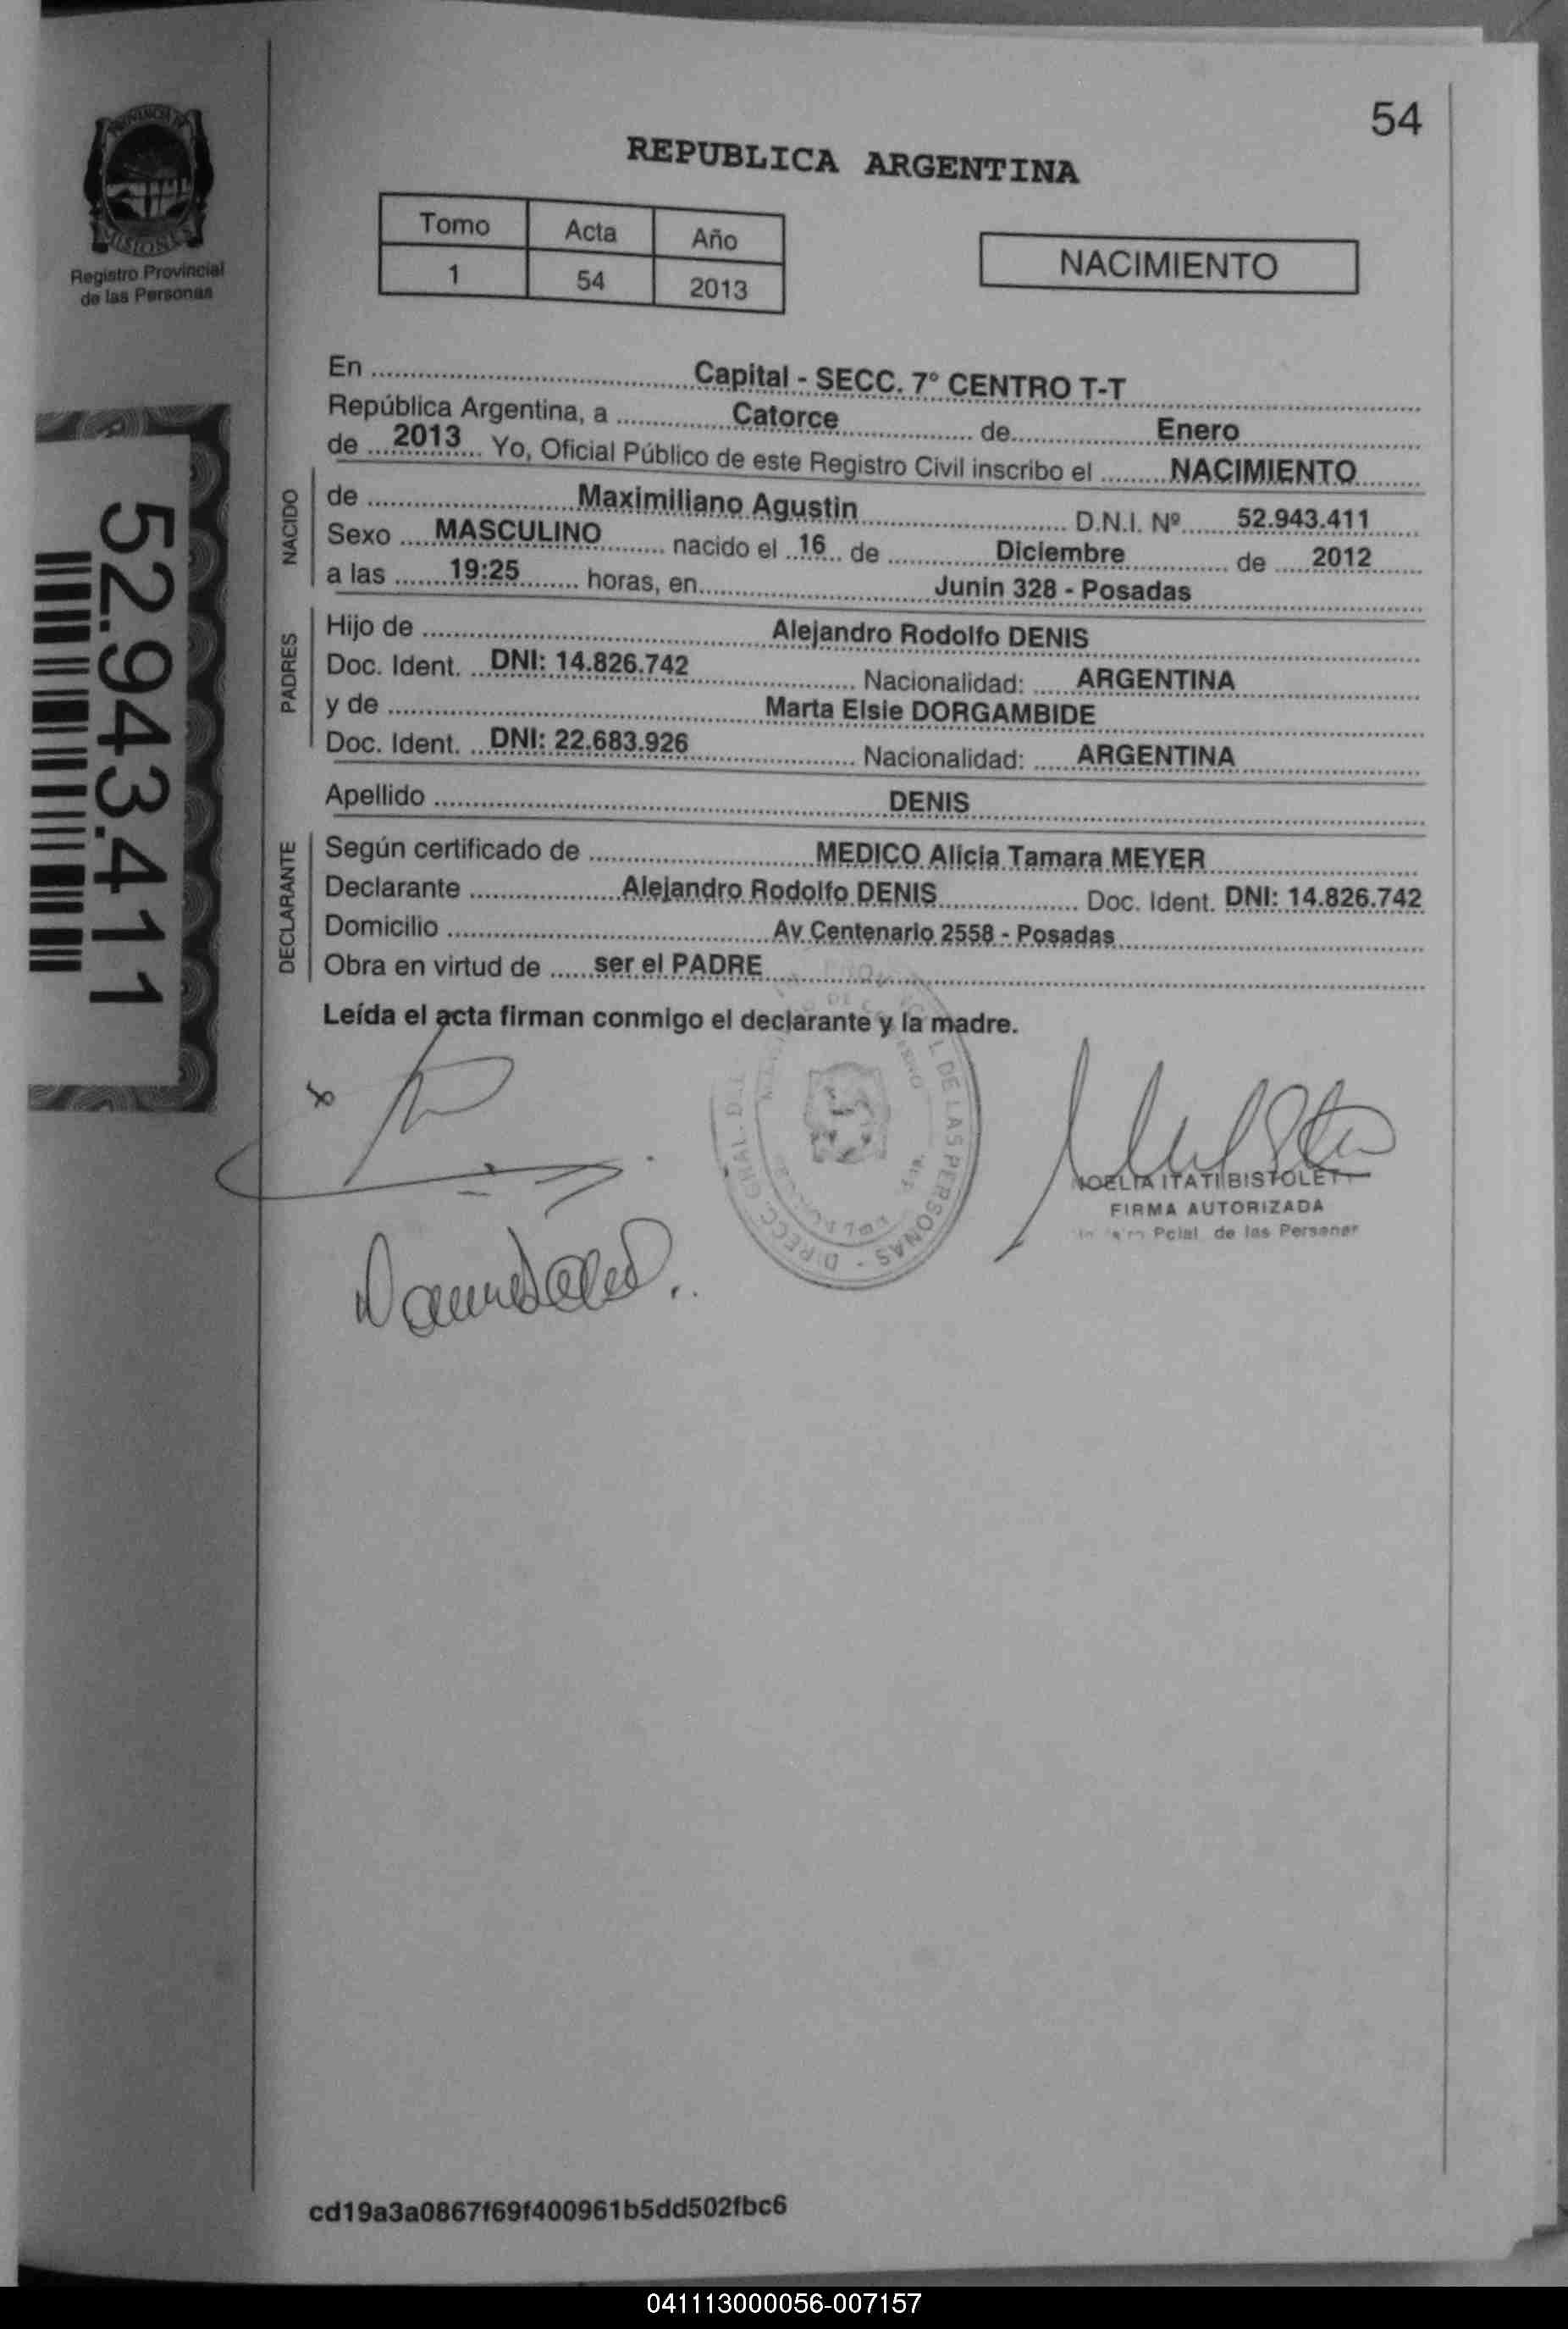 54
REPUBLICA ARGENTINA
PROVINCIA DE
MISIONES
Registro Provincial
de las Personas
Tomo Acta Año
1 54 2013
NACIMIENTO
52.943.411
En Capital - SECC. 7° CENTRO T-T
República Argentina, a Catorce de Enero
de 2013 Yo, Oficial Público de este Registro Civil inscribo el NACIMIENTO
NACIDO
de Maximiliano Agustin D.N.I. Nº 52.943.411
Sexo MASCULINO nacido el 16 de Diciembre de 2012
a las 19:25 horas, en Junin 328 - Posadas
PADRES
Hijo de Alejandro Rodolfo DENIS
Doc. Ident. DNI: 14.826.742 Nacionalidad: ARGENTINA
y de Marta Elsie DORGAMBIDE
Doc. Ident. DNI: 22.683.926 Nacionalidad: ARGENTINA
Apellido DENIS
DECLARANTE
Según certificado de MEDICO Alicia Tamara MEYER
Declarante Alejandro Rodolfo DENIS Doc. Ident. DNI: 14.826.742
Domicilio Av Centenario 2558 - Posadas
Obra en virtud de ser el PADRE
Leída el acta firman conmigo el declarante y la madre.
DE LAS PERSONAS - DIRECC. GRAL.
NOELIA ITATI BISTOLET
FIRMA AUTORIZADA
Pcial. de las Personas
cd19a3a0867f69f400961b5dd502fbc6
041113000056-007157